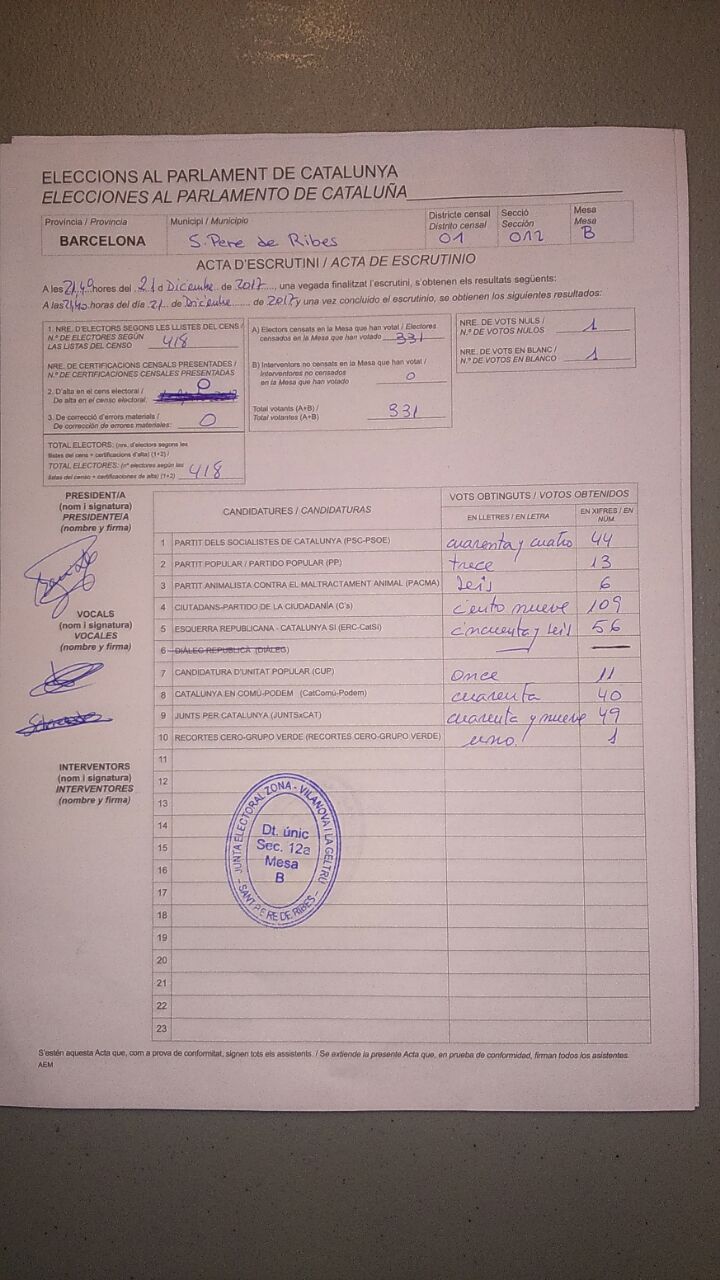 ELECCIONS AL PARLAMENT DE CATALUNYA
ELECCIONES AL PARLAMENTO DE CATALUÑA
Província / Provincia
BARCELONA
Municipi / Municipio
S. Pere de Ribes
Districte censal
Distrito censal
01
Secció
Sección
012
Mesa
Mesa
B
ACTA D'ESCRUTINI / ACTA DE ESCRUTINIO
A les 21,40 hores del 21 d Diciembre de 2017, una vegada finalitzat l'escrutini, s'obtenen els resultats següents:
A las 21,40 horas del día 21 de Diciembre de 2017 y una vez concluido el escrutinio, se obtienen los siguientes resultados:
1. NRE. D'ELECTORS SEGONS LES LLISTES DEL CENS /
N.º DE ELECTORES SEGÚN
LAS LISTAS DEL CENSO 418
NRE. DE CERTIFICACIONS CENSALS PRESENTADES /
N.º DE CERTIFICACIONES CENSALES PRESENTADAS
2. D'alta en el cens electoral / 0
De alta en el censo electoral:
3. De correcció d'errors materials /
De corrección de errores materiales: 0
TOTAL ELECTORS: (nre. d'electors segons les
llistes del cens + certificacions d'alta) (1+2) /
TOTAL ELECTORES: (nº electores según las
listas del censo + certificaciones de alta) (1+2) 418
A) Electors censats en la Mesa que han votat / Electores
censados en la Mesa que han votado 331
B) Interventors no censats en la Mesa que han votat /
Interventores no censados
en la Mesa que han votado 0
Total votants (A+B) /
Total votantes (A+B) 331
NRE. DE VOTS NULS /
N.º DE VOTOS NULOS 1
NRE. DE VOTS EN BLANC /
N.º DE VOTOS EN BLANCO 1
PRESIDENT/A
(nom i signatura)
PRESIDENTE/A
(nombre y firma)
VOCALS
(nom i signatura)
VOCALES
(nombre y firma)
INTERVENTORS
(nom i signatura)
INTERVENTORES
(nombre y firma)
CANDIDATURES / CANDIDATURAS
VOTS OBTINGUTS / VOTOS OBTENIDOS
EN LLETRES / EN LETRA
EN XIFRES / EN NÚM.
1 PARTIT DELS SOCIALISTES DE CATALUNYA (PSC-PSOE) cuarenta y cuatro 44
2 PARTIT POPULAR / PARTIDO POPULAR (PP) trece 13
3 PARTIT ANIMALISTA CONTRA EL MALTRACTAMENT ANIMAL (PACMA) seis 6
4 CIUTADANS-PARTIDO DE LA CIUDADANÍA (C's) ciento nueve 109
5 ESQUERRA REPUBLICANA - CATALUNYA SÍ (ERC-CatSí) cincuenta y seis 56
6 DIÀLEG REPUBLICÀ (DIÀLEG)
7 CANDIDATURA D'UNITAT POPULAR (CUP) once 11
8 CATALUNYA EN COMÚ-PODEM (CatComú-Podem) cuarenta 40
9 JUNTS PER CATALUNYA (JUNTSxCAT) cuarenta y nueve 49
10 RECORTES CERO-GRUPO VERDE (RECORTES CERO-GRUPO VERDE) uno 1
11
12
13
14
15
16
17
18
19
20
21
22
23
JUNTA ELECTORAL ZONA - VILANOVA I LA GELTRU
- SANT PERE DE RIBES -
Dt. únic
Sec. 12a
Mesa
B
S'estén aquesta Acta que, com a prova de conformitat, signen tots els assistents. / Se extiende la presente Acta que, en prueba de conformidad, firman todos los asistentes.
AEM